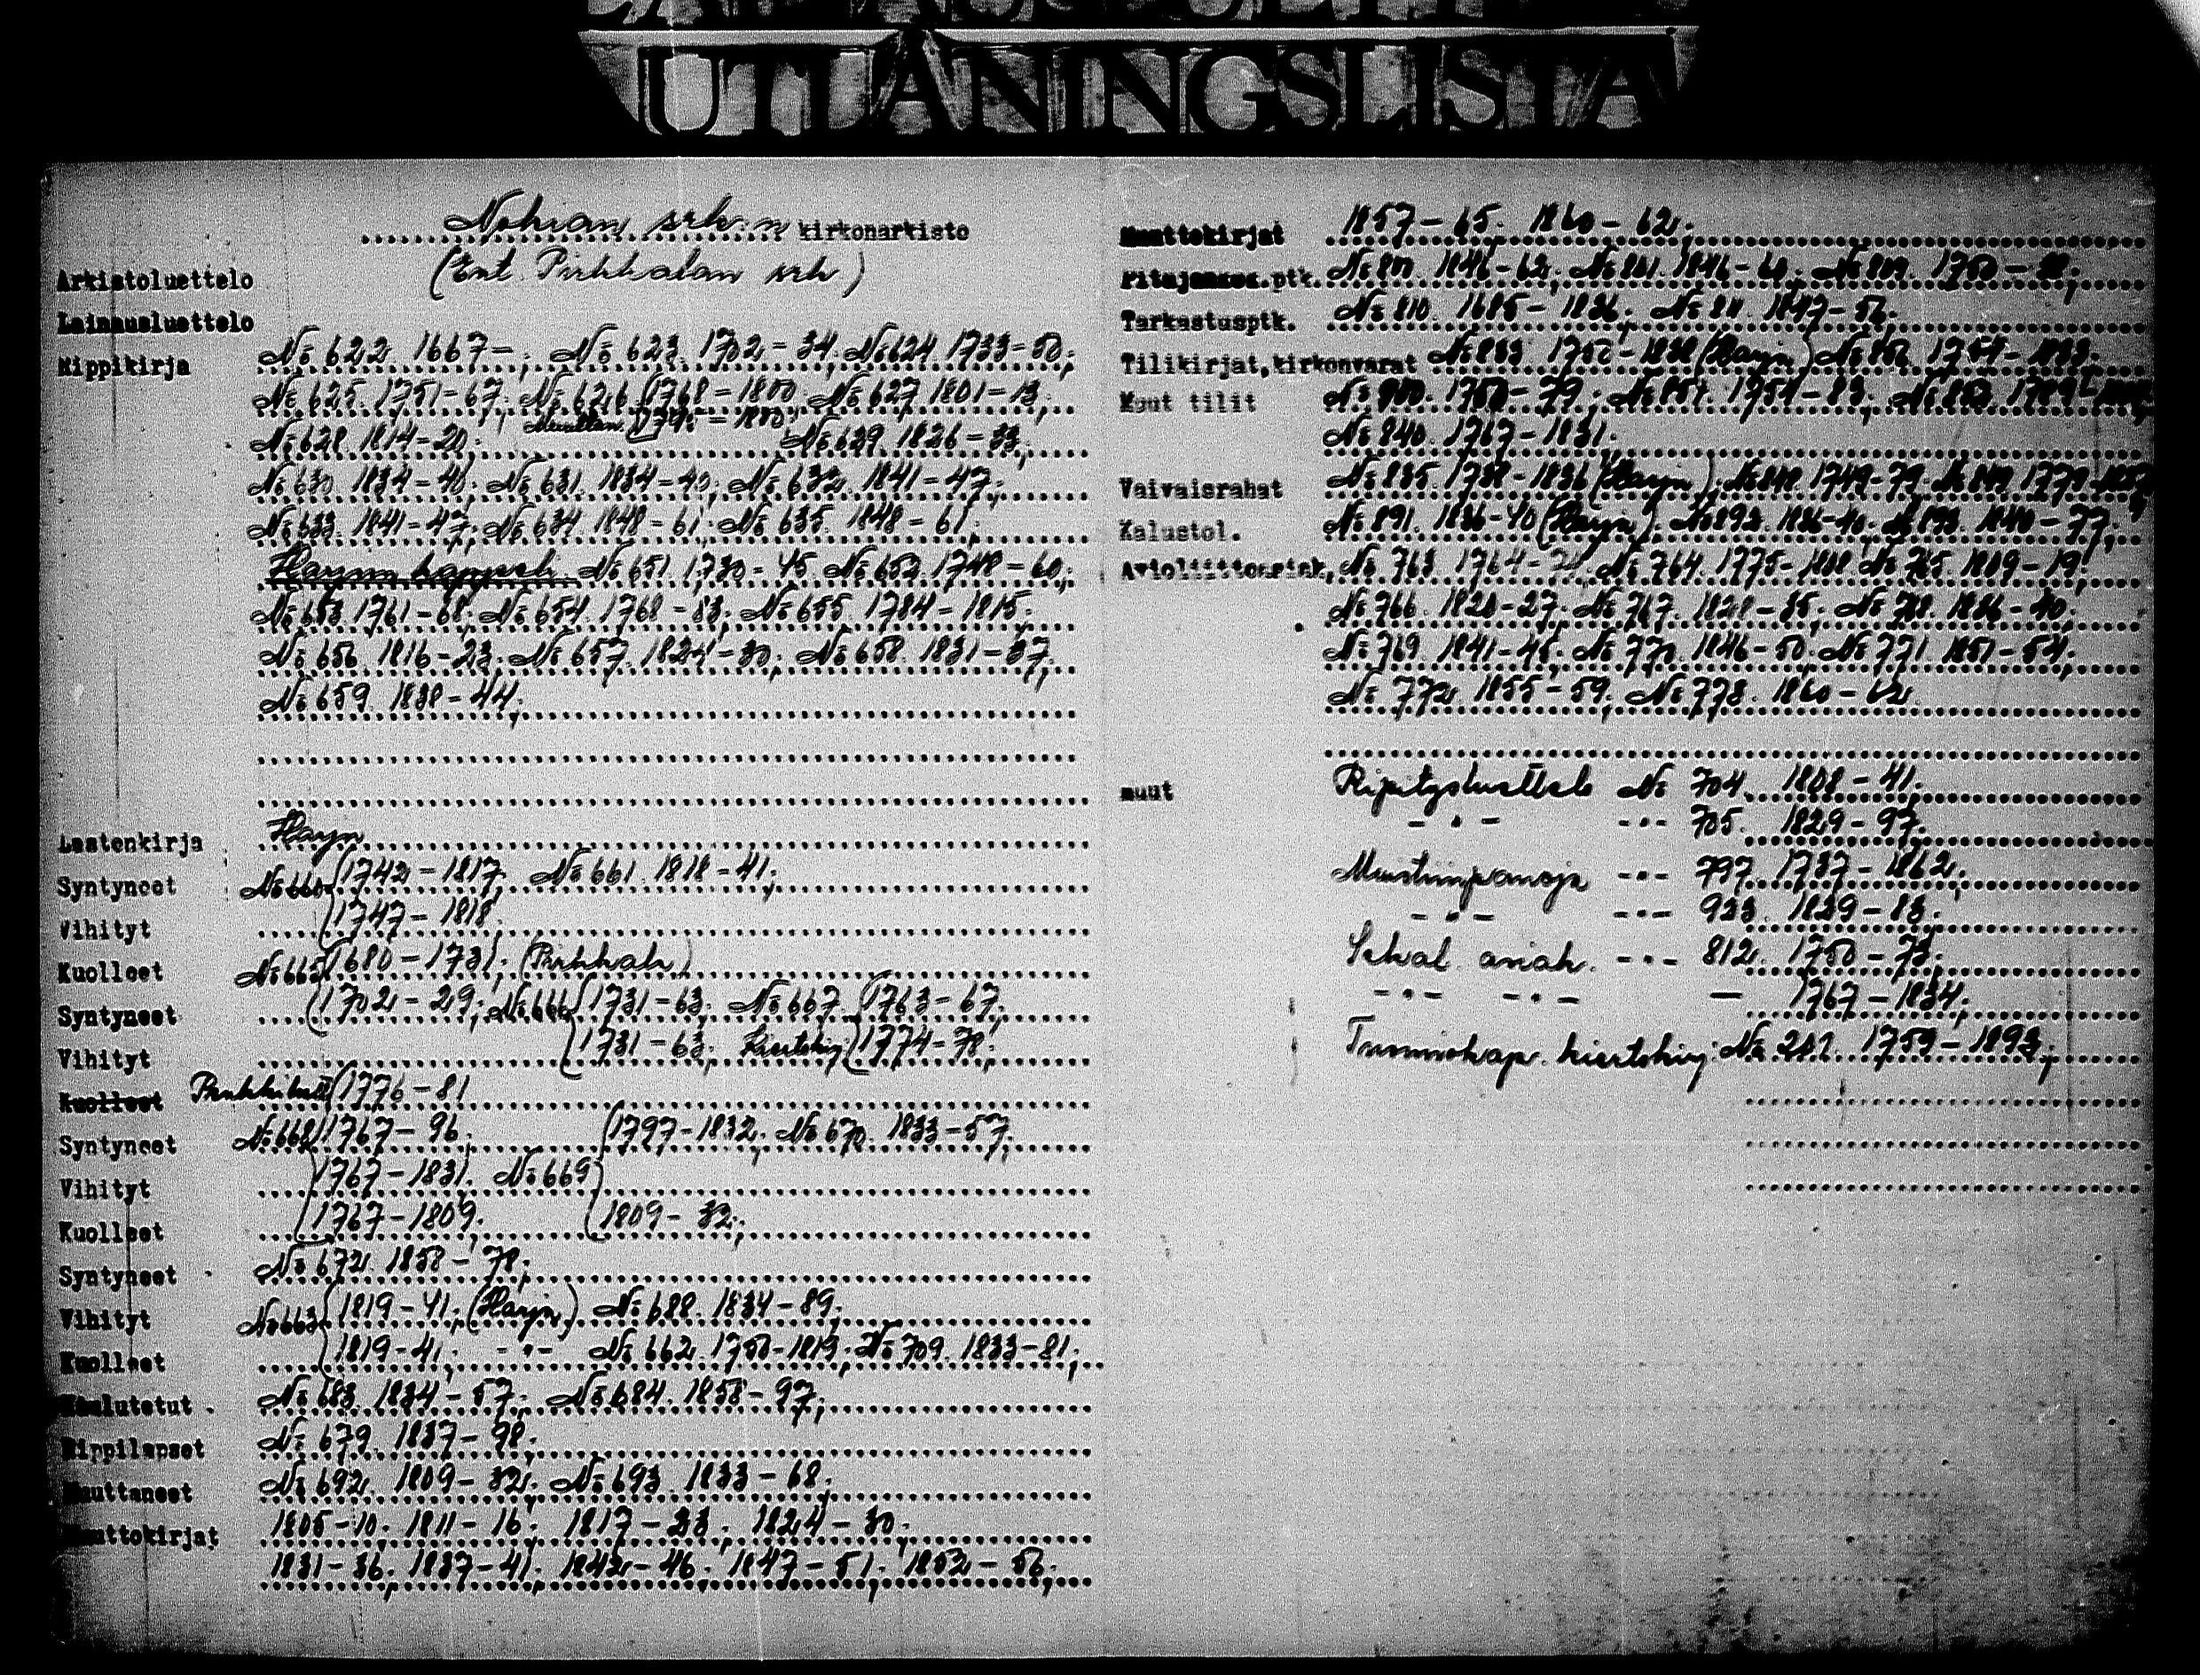 UTLÅNINGSLISTA
Nokian srk:n kirkonarkisto
(Ent. Pirkkalan srk)
Arkistoluettelo
Lainausluettelo
Rippikirja № 622. 1667-; № 623. 1702-34; № 624. 1733-50;
№ 625. 1751-67; № 626. 1768-1800. № 627. 1801-13;
№ 628. 1814-20; № 629. 1826-33;
№ 630. 1834-40; № 631. 1834-40; № 632. 1841-47;
№ 633. 1841-47; № 634. 1848-61; № 635. 1848-61;
№ 651. 1730-45. № 652. 1748-60;
№ 653. 1761-68; № 654. 1768-83; № 655. 1784-1815;
№ 656. 1816-23; № 657. 1824-30; № 658. 1831-37;
№ 659. 1838-44;
Lastenkirja Harju
Syntyneet № 660 1742-1817; № 661. 1818-41;
Vihityt 1747-1818.
Kuolleet № 665 1680-1731; (Pirkkala)
Syntyneet 1702-29; № 666 1731-63; № 667 1763-67;
Vihityt 1731-63; Kiertokirj. 1774-78;
Kuolleet 1776-81
Syntyneet № 668 1767-96; 1797-1832; № 670. 1833-57;
Vihityt 1767-1831; № 669
Kuolleet 1767-1809; 1809-32;
Syntyneet № 672. 1858-78;
Vihityt № 663 1819-41; (Harju) № 688. 1834-89;
Kuolleet 1819-41; -"- № 662. 1750-1819; № 709. 1833-81;
Kuulutetut № 683. 1834-57; № 684. 1858-97;
Rippilapset № 679. 1837-98;
Muuttaneet № 692. 1809-32; № 693. 1833-68;
Muuttokirjat 1805-10; 1811-16; 1817-23; 1824-30;
1831-36; 1837-41; 1842-46; 1847-51; 1852-56;
Muuttokirjat 1857-65. 1860-62;
Pitäjänkok.ptk. 1846-62; № 801. 1846-60; № 809.
Tarkastusptk. № 810. 1685-1836; № 811. 1847-56.
Tilikirjat,kirkonvarat № 833. (Harju)
Muut tilit № 851. 1754-83;
№ 840. 1767-1831.
Vaivaisrahat № 835. 1738-1836 (Harju); 1749-79.
Kalustol. № 891. 1836-40 (Harju); 1840-77;
Avioliittoasiak. № 763. 1764-74; № 764. 1775-1808 № 765. 1809-19;
№ 766. 1820-27; № 767. 1828-35; № 768. 1836-40;
№ 769. 1841-45; № 770. 1846-50; № 771. 1851-54;
№ 772. 1855-59. № 773. 1860-62
muut Ripityslustelo № 704. 1808-41;
-"- -"- 705. 1829-97;
Muistiinpanoja -"- 797. 1737-1862;
-"- -"- 923. 1829-83;
Sekal. asiak. -"- 812. 1750-73;
-"- -"- - 1767-1834;
Tuomiokap. kiertokirj. 1759-1893;